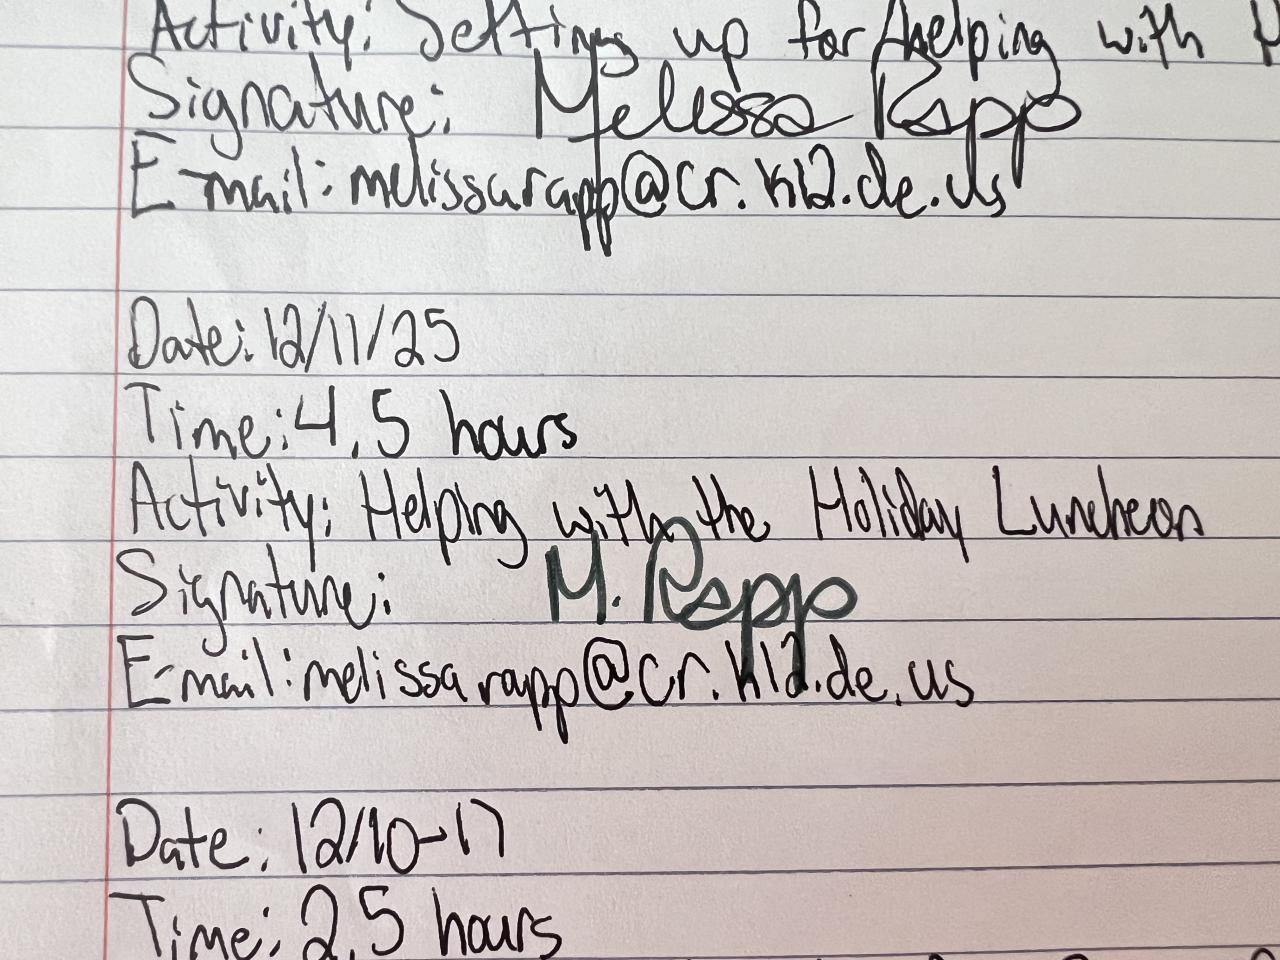 Activity: Setting up for/helping with H
Signature: Melissa Rapp
E-mail: melissa.rapp@cr.k12.de.us
Date: 12/11/25
Time: 4.5 hours
Activity: Helping with the Holiday Luncheon
Signature: M. Rapp
E-mail: melissa.rapp@cr.k12.de.us
Date: 12/10-17
Time: 2.5 hours